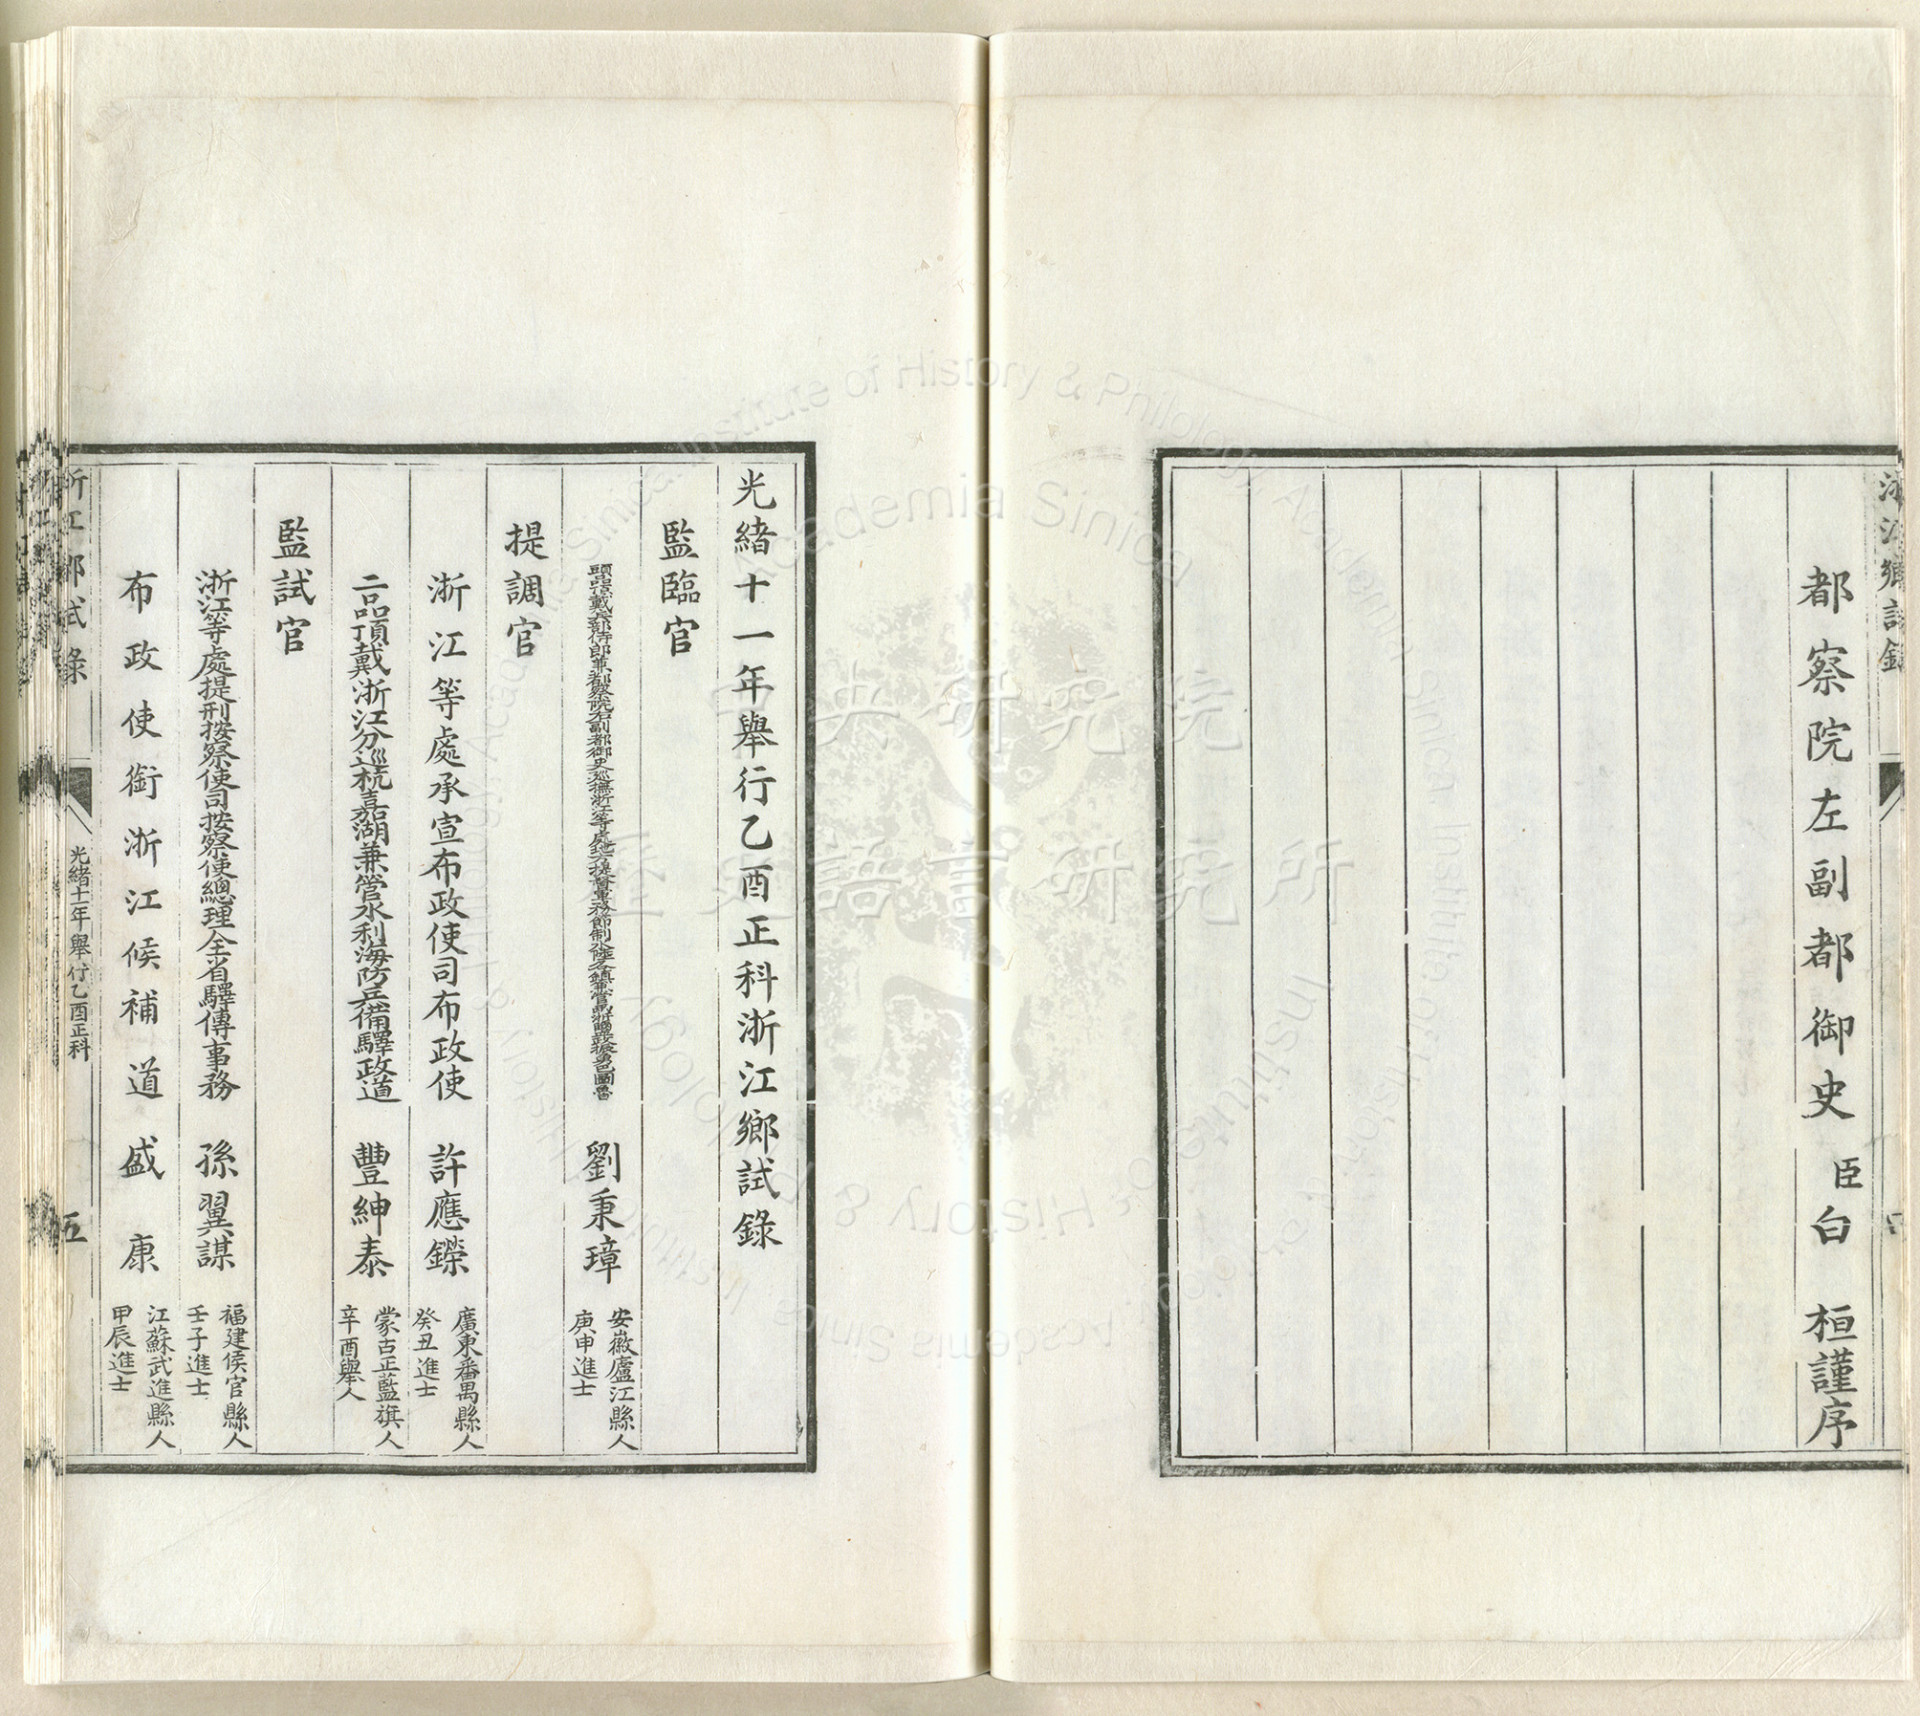 都察院左副都御史臣白桓謹序
光緒十一年舉行乙酉正科浙江鄉試錄
監臨官
頭品頂戴兵部侍郎兼都察院右副都御史巡撫浙江等處地方提督軍務節制水陸各鎮兼管兩浙鹽政振勇巴圖魯 劉秉璋 安徽廬江縣人 庚申進士
提調官
浙江等處承宣布政使司布政使 許應鑅 廣東番禺縣人 癸丑進士
二品頂戴浙江分巡杭嘉湖兼管水利海防兵備驛政道 豐紳泰 蒙古正藍旗人 辛酉舉人
監試官
浙江等處提刑按察使司按察使總理全省驛傳事務 孫翼謀 福建侯官縣人 壬子進士
布政使銜浙江候補道 盛康 江蘇武進縣人 甲辰進士
浙江鄉試錄
光緒十一年舉行乙酉正科
五
中央研究院
歷史語言研究所
Academia Sinica
Institute of History & Philology